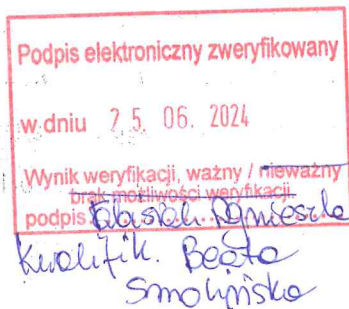 Podpis elektroniczny zweryfikowany
w dniu 25. 06. 2024
Wynik weryfikacji, ważny / nieważny
brak możliwości weryfikacji
podpis Agnieszka
Kwalifik. Beata
Smolińska